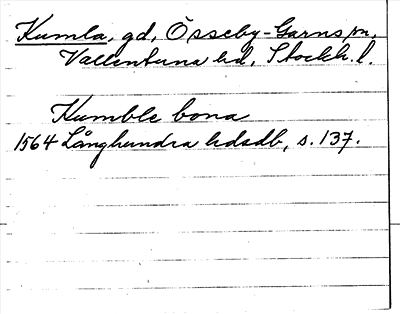 Kumla, gd, Össeby-Garns sn,
Vallentuna hd, Stockh. l.
Kumble bona
1564 Långhundra hdsdb, s. 137.